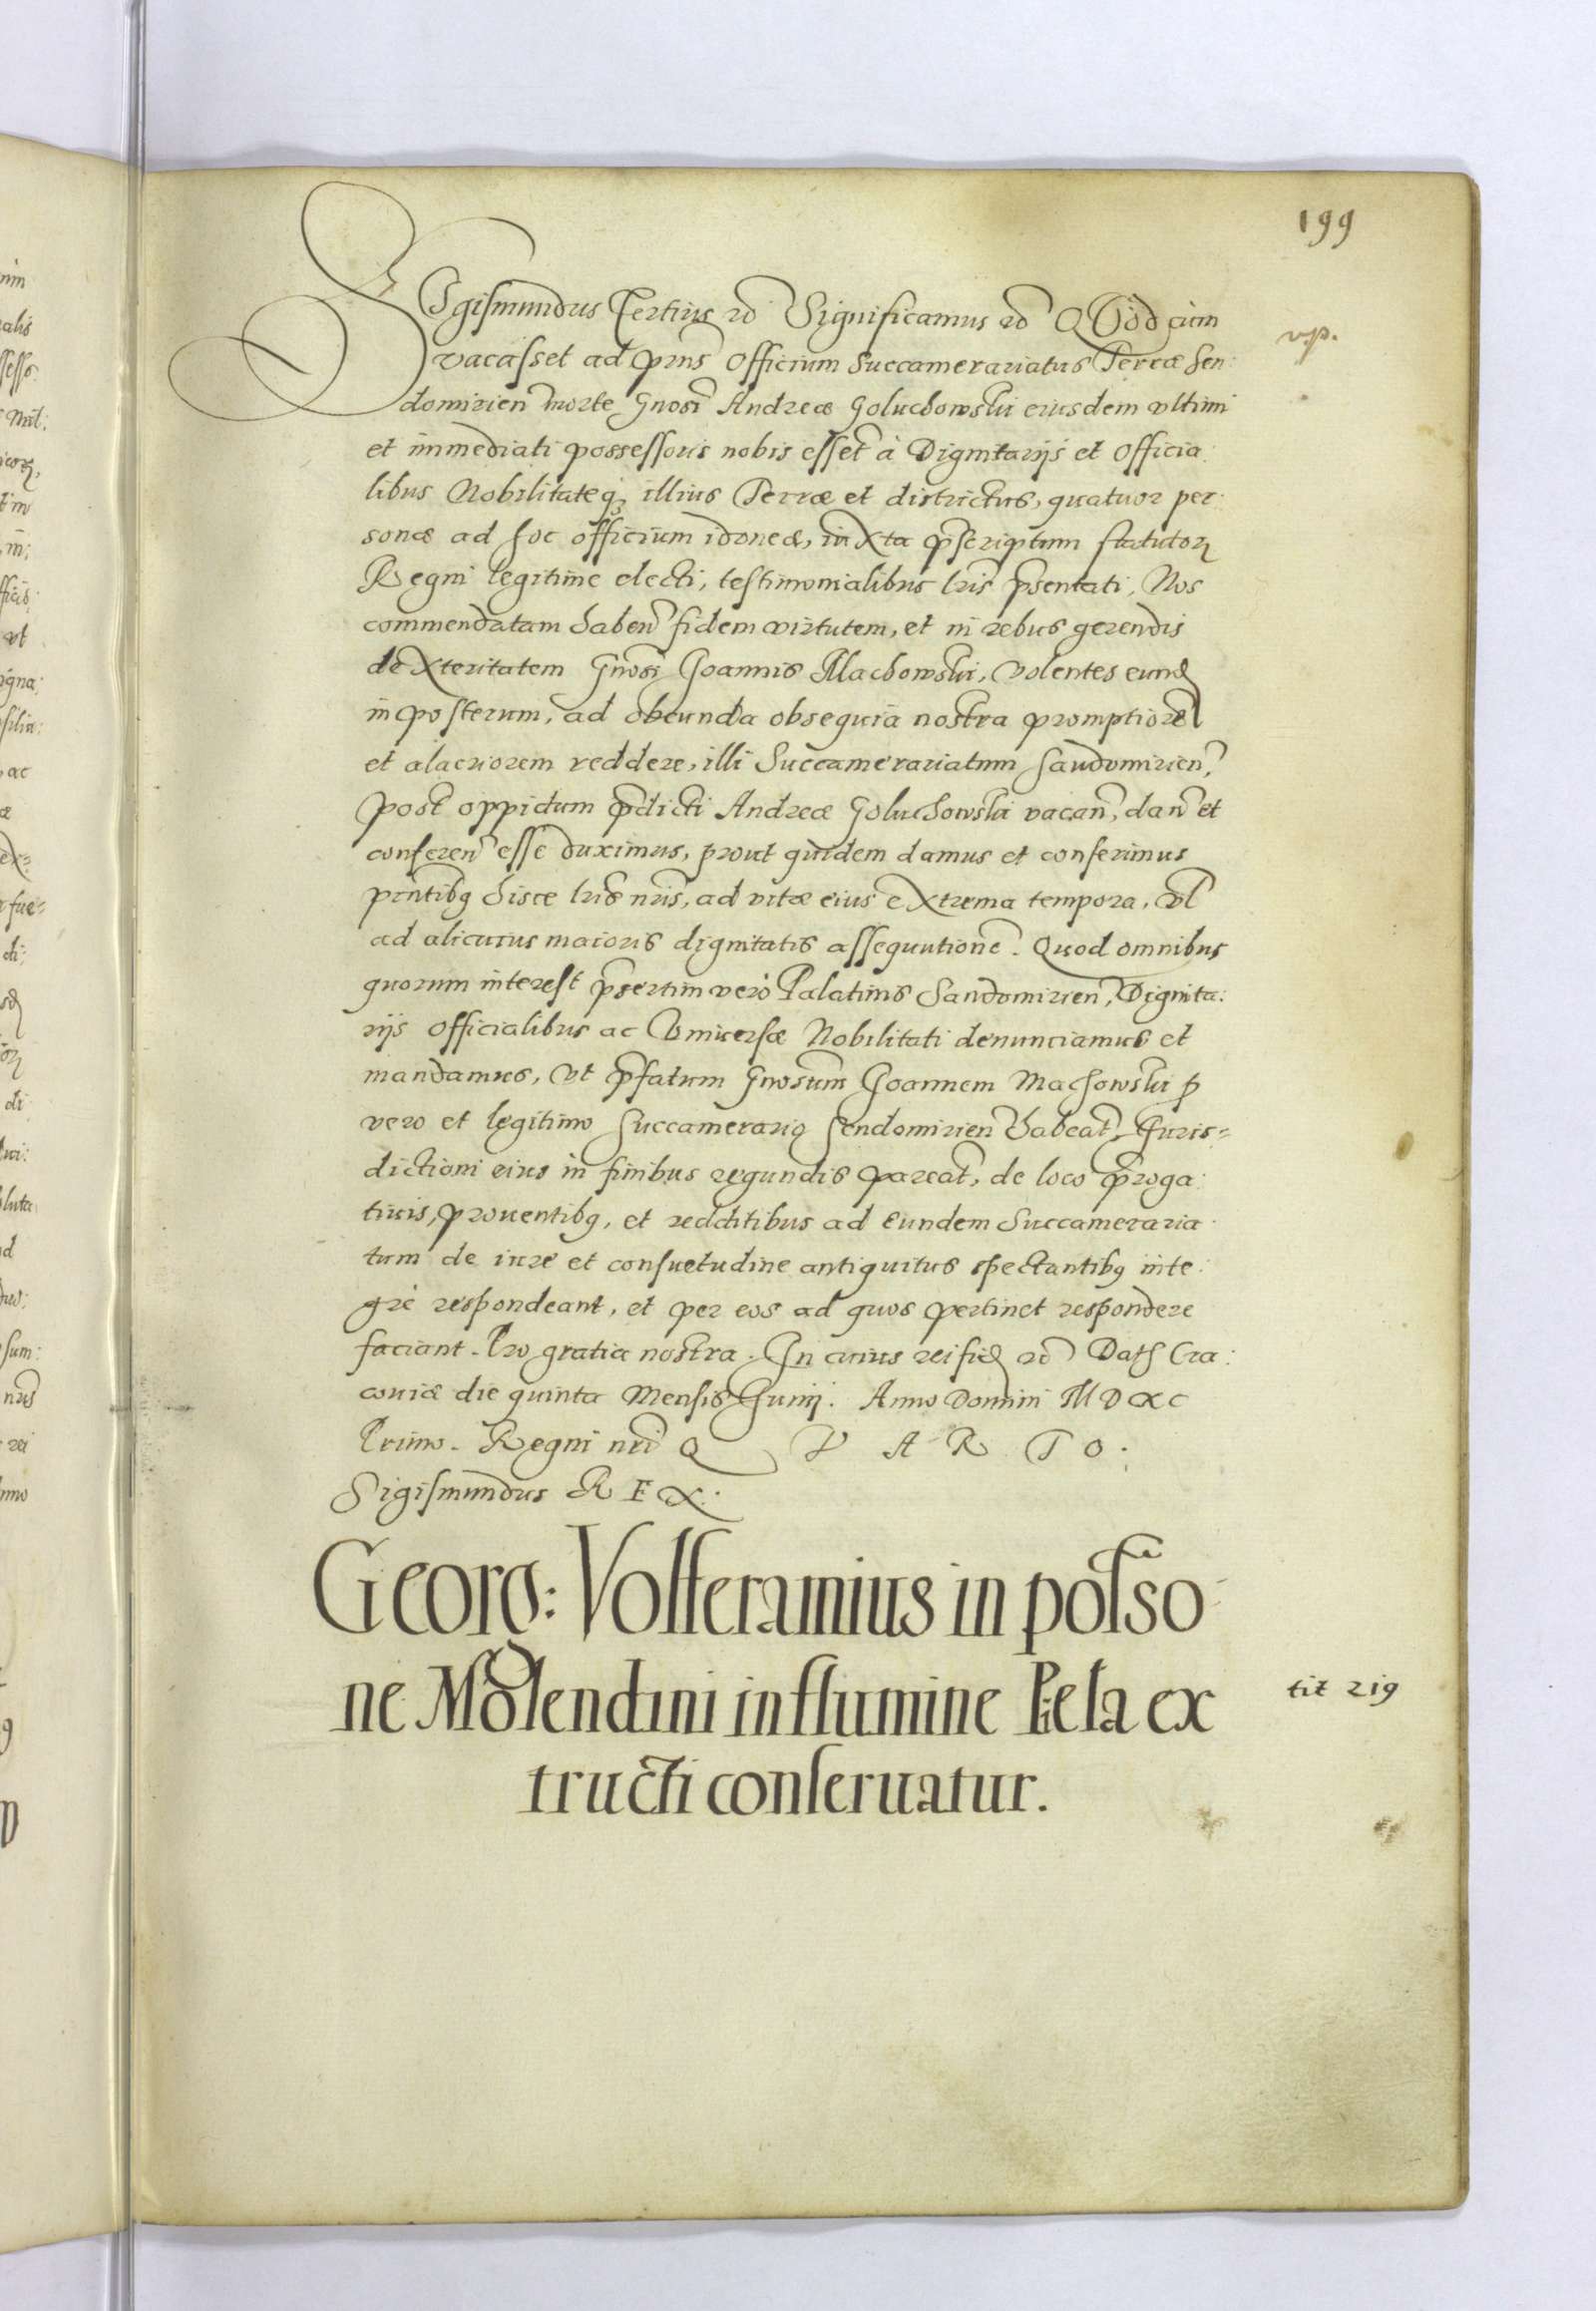 199
SIgismundus Tertius etc Significamus etc QVod cum
vacasset ad p̃ns officium Succamerariatus Terræ Sen:
domirien̄ morte Gnosi Andreæ Goluchowski eiusdem vltimi
et immediati possessoris nobis essēt à Dignitarijs et officia:
libus Nobilitateq; illius Terræ et districtus, quatuor per:
sonæ ad hoc officium idoneæ, iuxta p̃scriptum statutoꝝ
Regni legitime electi, testimonialibus l̃ris p̃sentati, Nos
commendatam haben̄ fidem virtutem, et in rebus gerendis
dexteritatem Gnosi Joannis Machowski, volentes eund̃
in posterum, ad obeunda obsequia nostra promptiorē
et alacriorem reddere, illi Succamerariatum Sandomirien̄,
post oppidum p̃dicti Andreæ Goluchowski vacan̄, dan̄ et
conferen̄ esse duximus, prout quidem damus et conferimus
p̃ntibq hisce l̃ris ñris, ad vitæ eius extrema tempora, vl̃
ad alicuius maioris dignitatis assequutionē. Quod omnibus
quorum interest p̃sertim verò Palatinis Sandomirien̄, Dignita:
rijs officialibus ac Vniuersæ Nobilitati denunciamus et
mandamus, vt p̃fatum Gnosum Joannem Machowski ꝓ
vero et legitimo Succamerario Sendomirien̄ habeāt, Juris=
dictioni eius in finibus regundis pareāt, de loco p̃roga:
tiuis, prouentibq, et redditibus ad eundem Succameraria:
tum de iure et consuetudine antiquitus spectantibq inte:
grè respondeant, et per eos ad quos pertinet respondere
faciant. Pro gratia nostra. In cuius rei fid̃ etc Dat̃ Cra:
couiæ die quinta Mensis Junij. Anno Domini MDXC
Primo. Regni nr̃i QVARTO.
Sigismundus REX.
Georg: Volfferamius in pol̃so
ne Molendini in flumine Piela ex
tructi conseruatur.
tit 219